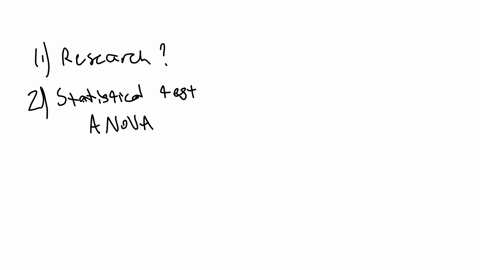 1) Research?
2) Statistical test
ANOVA